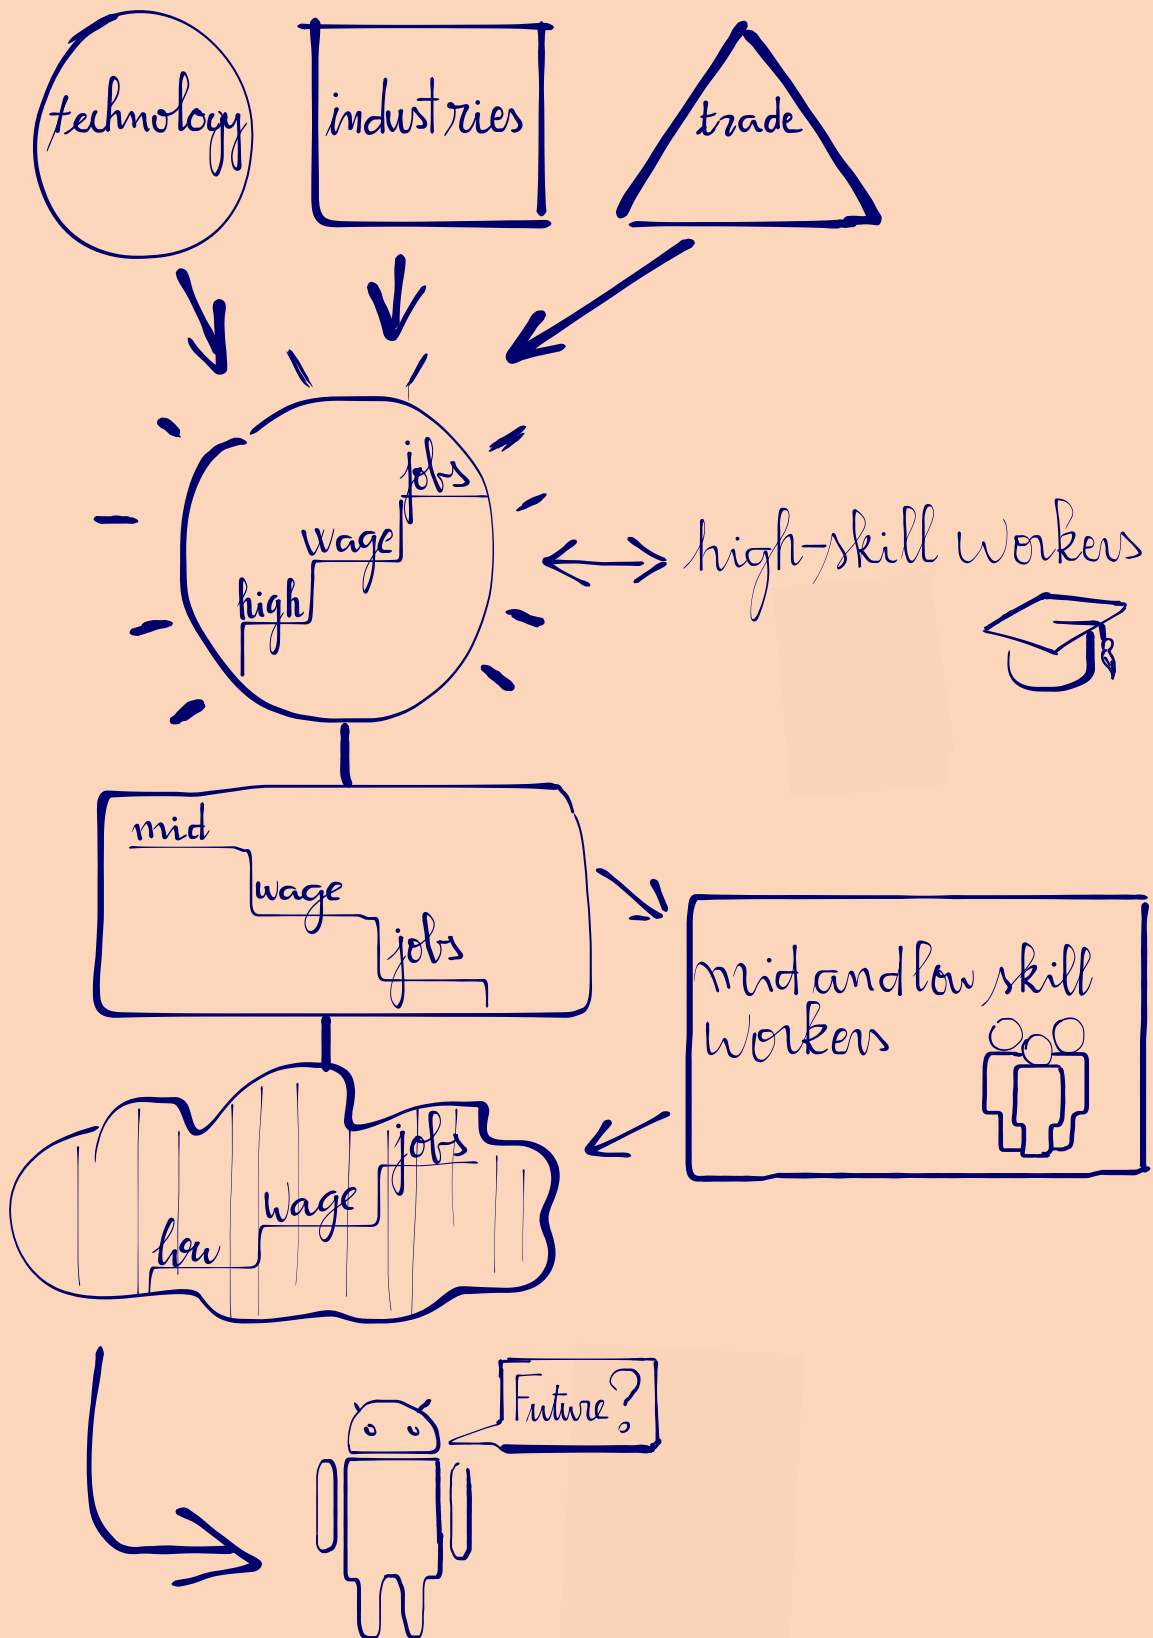 technology
industries
trade
high
wage
jobs
high-skill workers
mid
wage
jobs
mid and low skill
workers
low
wage
jobs
Future?